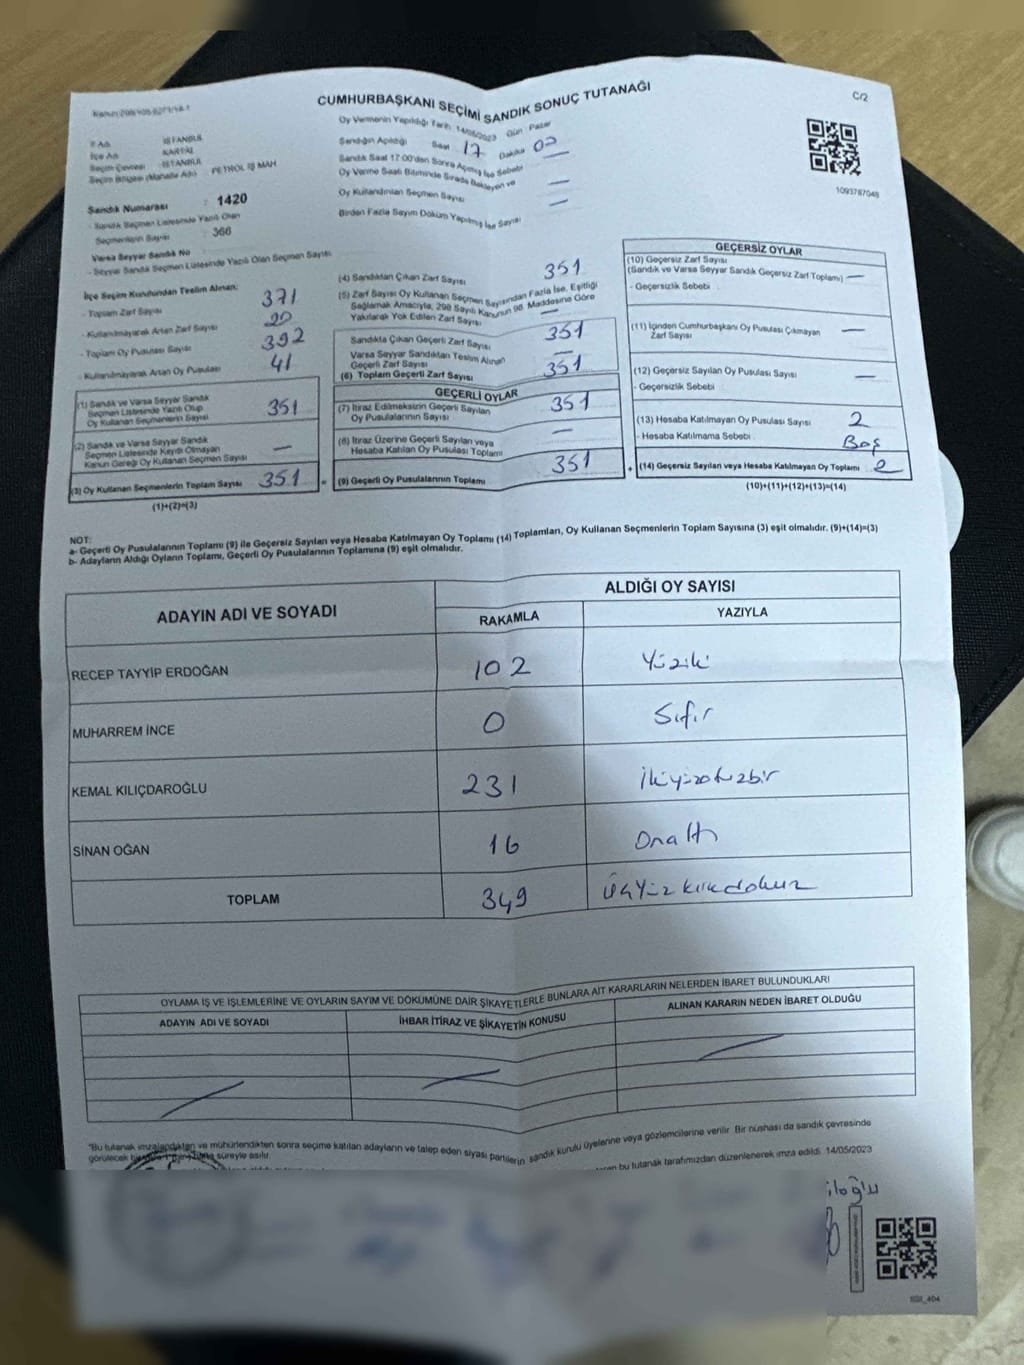 CUMHURBAŞKANI SEÇİMİ SANDIK SONUÇ TUTANAĞI
C/2
Oy Vermenin Yapıldığı Tarih: 14/05/2023 Gün : Pazar
Sandığın Açıldığı Saat 17 Dakika 02
Sandık Saat 17:00'den Sonra Açılmış İse Sebebi
Oy Verme Saati Bitiminde Sırada Bekleyen ve
Oy Kullandırılan Seçmen Sayısı
Birden Fazla Sayım Döküm Yapılmış İse Sayısı
1093787048
İl Adı : İSTANBUL
İlçe Adı : KARTAL
Seçim Çevresi : İSTANBUL
Seçim Bölgesi (Mahalle Adı) : PETROL İŞ MAH.
Sandık Numarası : 1420
- Sandık Seçmen Listesinde Yazılı Olan
Seçmenlerin Sayısı : 366
Varsa Seyyar Sandık No
- Seyyar Sandık Seçmen Listesinde Yazılı Olan Seçmen Sayısı:
İlçe Seçim Kurulundan Teslim Alınan:
- Toplam Zarf Sayısı 371
- Kullanılmayarak Artan Zarf Sayısı 20
- Toplam Oy Pusulası Sayısı 392
- Kullanılmayarak Artan Oy Pusulası 41
(1) Sandık ve Varsa Seyyar Sandık
Seçmen Listesinde Yazılı Olup
Oy Kullanan Seçmenlerin Sayısı 351
(2) Sandık ve Varsa Seyyar Sandık
Seçmen Listesinde Kaydı Olmayan
Kanun Gereği Oy Kullanan Seçmen Sayısı —
(3) Oy Kullanan Seçmenlerin Toplam Sayısı 351
(1)+(2)=(3)
(4) Sandıktan Çıkan Zarf Sayısı 351
(5) Zarf Sayısı Oy Kullanan Seçmen Sayısından Fazla İse, Eşitliği
Sağlamak Amacıyla, 298 Sayılı Kanunun 98. Maddesine Göre
Yakılarak Yok Edilen Zarf Sayısı —
Sandıkta Çıkan Geçerli Zarf Sayısı 351
Varsa Seyyar Sandıktan Teslim Alınan
Geçerli Zarf Sayısı —
(6) Toplam Geçerli Zarf Sayısı 351
GEÇERLİ OYLAR
(7) İtiraz Edilmeksizin Geçerli Sayılan
Oy Pusulalarının Sayısı 351
(8) İtiraz Üzerine Geçerli Sayılan veya
Hesaba Katılan Oy Pusulası Toplamı —
(9) Geçerli Oy Pusulalarının Toplamı 351
GEÇERSİZ OYLAR
(10) Geçersiz Zarf Sayısı
(Sandık ve Varsa Seyyar Sandık Geçersiz Zarf Toplamı) —
- Geçersizlik Sebebi
(11) İçinden Cumhurbaşkanı Oy Pusulası Çıkmayan
Zarf Sayısı —
(12) Geçersiz Sayılan Oy Pusulası Sayısı —
- Geçersizlik Sebebi
(13) Hesaba Katılmayan Oy Pusulası Sayısı 2
- Hesaba Katılmama Sebebi Boş
(14) Geçersiz Sayılan veya Hesaba Katılmayan Oy Toplamı 2
(10)+(11)+(12)+(13)=(14)
NOT:
a- Geçerli Oy Pusulalarının Toplamı (9) ile Geçersiz Sayılan veya Hesaba Katılmayan Oy Toplamı (14) Toplamları, Oy Kullanan Seçmenlerin Toplam Sayısına (3) eşit olmalıdır. (9)+(14)=(3)
b- Adayların Aldığı Oyların Toplamı, Geçerli Oy Pusulalarının Toplamına (9) eşit olmalıdır.
ADAYIN ADI VE SOYADI
ALDIĞI OY SAYISI
RAKAMLA YAZIYLA
RECEP TAYYİP ERDOĞAN 102 Yüziki
MUHARREM İNCE 0 Sıfır
KEMAL KILIÇDAROĞLU 231 İkiyüzotuzbir
SİNAN OĞAN 16 Onaltı
TOPLAM 349 Üçyüzkırkdokuz
OYLAMA İŞ VE İŞLEMLERİNE VE OYLARIN SAYIM VE DÖKÜMÜNE DAİR ŞİKAYETLERLE BUNLARA AİT KARARLARIN NELERDEN İBARET BULUNDUKLARI
ADAYIN ADI VE SOYADI İHBAR İTİRAZ VE ŞİKAYETİN KONUSU ALINAN KARARIN NEDEN İBARET OLDUĞU
"Bu tutanak imzalandıktan ve mühürlendikten sonra seçime katılan adayların ve talep eden siyasi partilerin, sandık kurulu üyelerine veya gözlemcilerine verilir. Bir nüshası da sandık çevresinde
görülecek süreyle asılır.
bu tutanak tarafımızdan düzenlenerek imza edildi. 14/05/2023
iloğlu